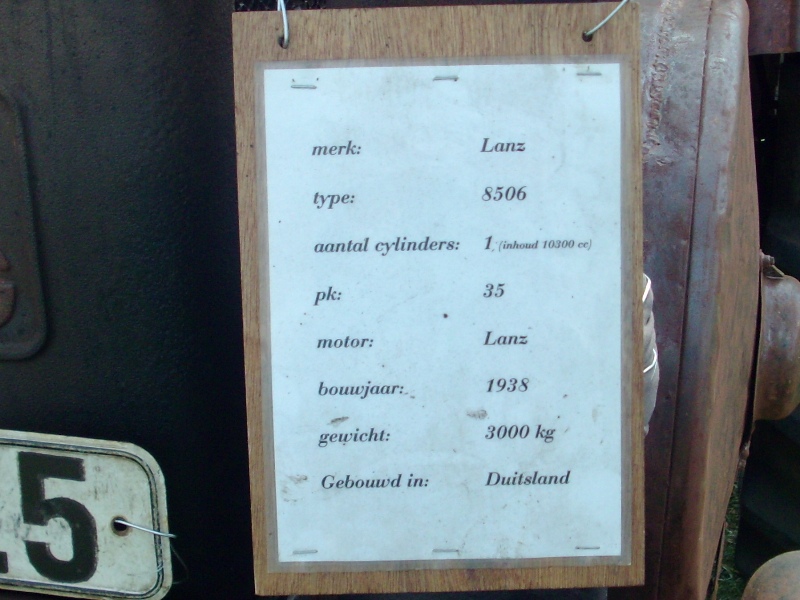 merk: Lanz
type: 8506
aantal cylinders: 1 (inhoud 10300 cc)
pk: 35
motor: Lanz
bouwjaar: 1938
gewicht: 3000 kg
Gebouwd in: Duitsland
5